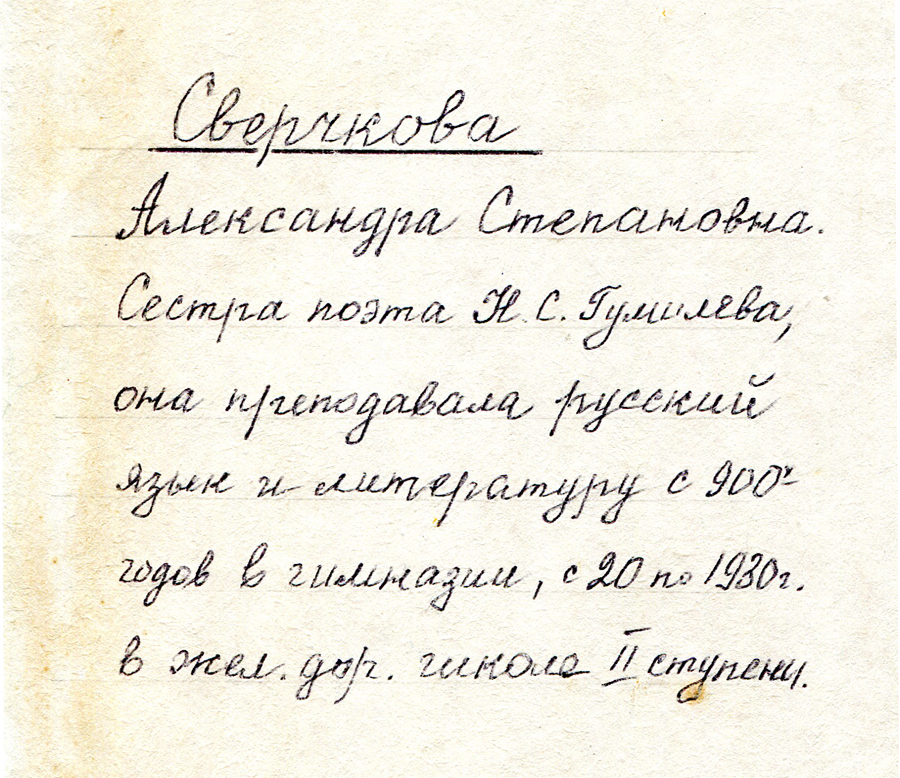 Сверчкова
Александра Степановна.
Сестра поэта Н.С. Гумилева,
она преподавала русский
язык и литературу с 900х
годов в гимназии, с 20 по 1930г.
в жел. дор. школе II ступени.